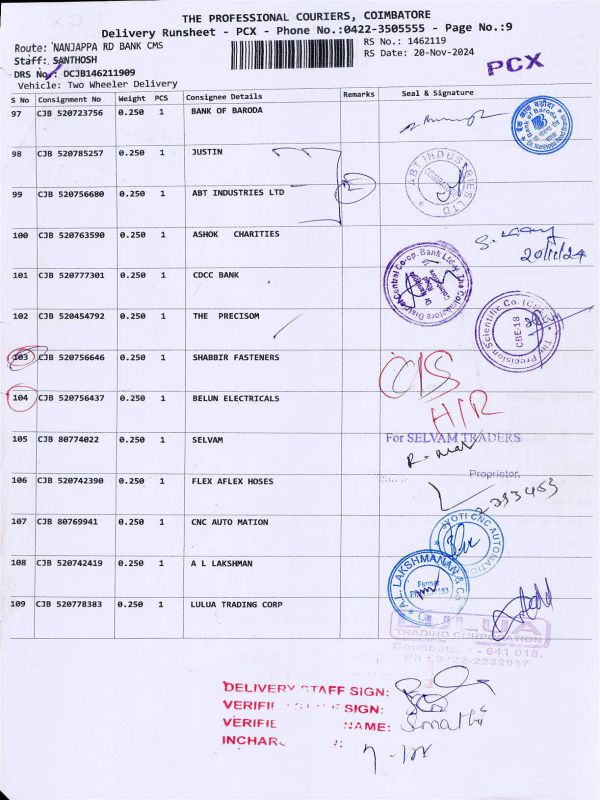 THE PROFESSIONAL COURIERS, COIMBATORE
Delivery Runsheet - PCX - Phone No.:0422-3505555 - Page No.:9
Route: NANJAPPA RD BANK CMS
RS No.: 1462119
Staff: SANTHOSH
RS Date: 20-Nov-2024
DRS No.: DCJB146211909
PCX
Vehicle: Two Wheeler Delivery
S No Consignment No Weight PCS Consignee Details Remarks Seal & Signature
97 CJB 520723756 0.250 1 BANK OF BARODA
Bank of Baroda
98 CJB 785257 0.250 1 JUSTIN
99 CJB 520756680 0.250 1 ABT INDUSTRIES LTD 2
ABT INDUSTRIES LTD
100 CJB 520763590 0.250 1 ASHOK CHARITIES
20/11/24
101 CJB 520777301 0.250 1 CDCC BANK
The Coimbatore District Central Co-op. Bank Ltd.
102 CJB 520454792 0.250 1 THE PRECISOM
The Precision Scientific Co. CBE-18
103 CJB 520756646 0.250 1 SHABBIR FASTENERS
C/S
104 CJB 520756437 0.250 1 BELUN ELECTRICALS
H/R
105 CJB 80774022 0.250 1 SELVAM
For SELVAM TRADERS
Proprietor.
106 CJB 520742390 0.250 1 FLEX AFLEX HOSES
2233453
107 CJB 80769941 0.250 1 CNC AUTO MATION
JYOTI CNC AUTOMATION
108 CJB 520742419 0.250 1 A L LAKSHMAN
A.L. LAKSHMANAN & Co
109 CJB 520778383 0.250 1 LULUA TRADING CORP
LULUA
TRADING CORPORATION
Coimbatore - 641 018.
Ph : 0422-2232917
DELIVERY STAFF SIGN:
VERIFIE SIGN:
VERIFIE NAME: Sumathi
INCHAR